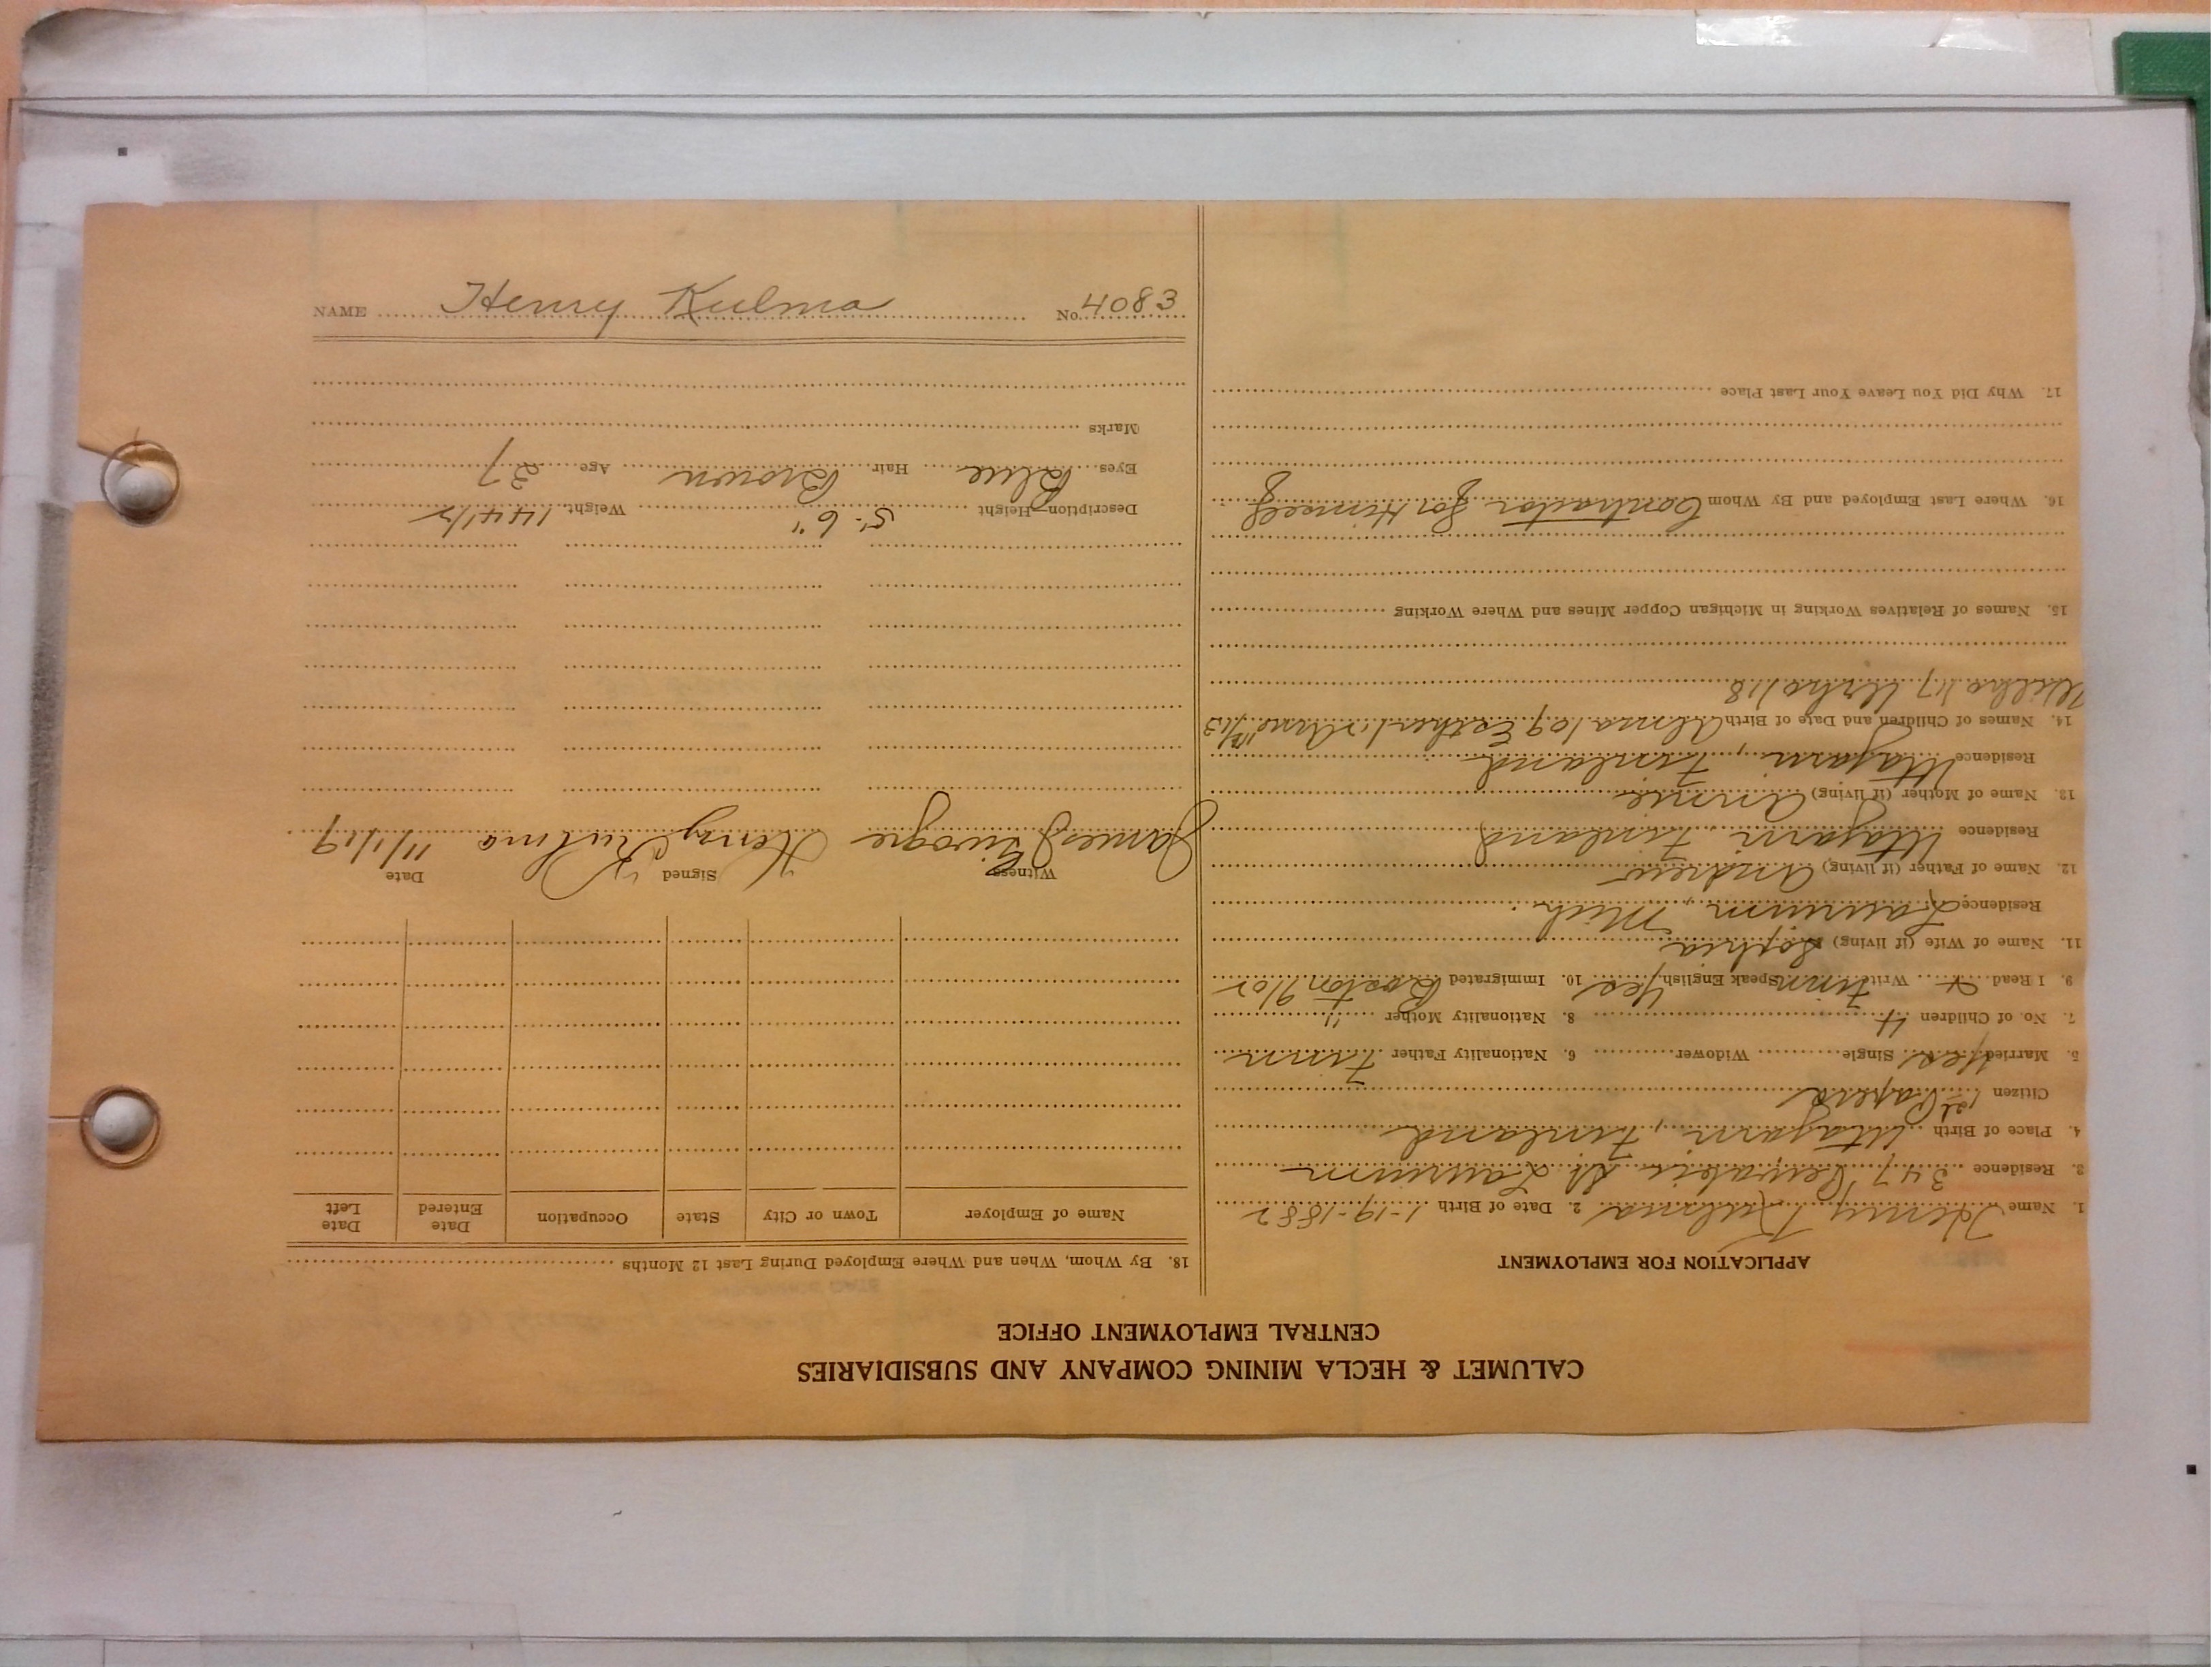 CALUMET & HECLA MINING COMPANY AND SUBSIDIARIES
CENTRAL EMPLOYMENT OFFICE
APPLICATION FOR EMPLOYMENT
1. Name Henry Kulma 2. Date of Birth 1-19-1882
3. Residence 347 Kewabic St Laurium
4. Place of Birth Utajarvi, Finland
Citizen 1st Papers
5. Married Yes Single Widower 6. Nationality Father Finn
7. No. of Children 4 8. Nationality Mother "
9. I Read & Write Finn Speak English Yes 10. Immigrated Boston 9/02
11. Name of Wife (if living) Sophia
Residence Laurium, Mich.
12. Name of Father (if living) Andrew
Residence Utajarvi, Finland
13. Name of Mother (if living) Annie
Residence Utajarvi, Finland
14. Names of Children and Date of Birth Alma /09 Esther /12 Arne /13
Wilho /17 Urho /18
15. Names of Relatives Working in Michigan Copper Mines and Where Working
16. Where Last Employed and By Whom Contractor for Himself
17. Why Did You Leave Your Last Place
18. By Whom, When and Where Employed During Last 12 Months
Name of Employer Town or City State Occupation Date Entered Date Left
Witness Signed Date
James Henry Kulma 11/1/19
Description Height 5'-6" Weight 144 1/2
Eyes Blue Hair Brown Age 37
Marks
NAME Henry Kulma No. 4083